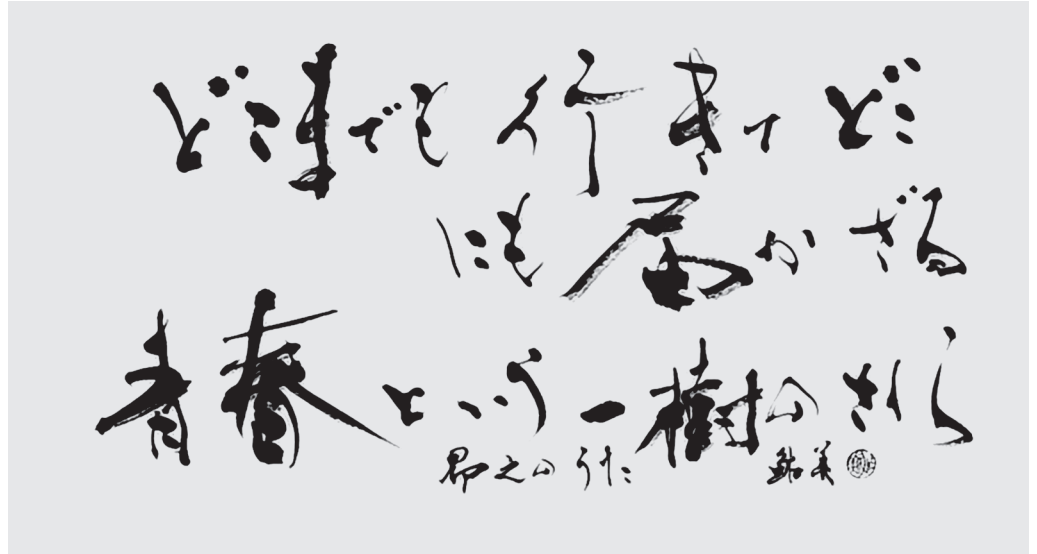 どこまでも行きてどこ
にも届かざる
青春という一樹のさくら
昂之のうた 鮎美